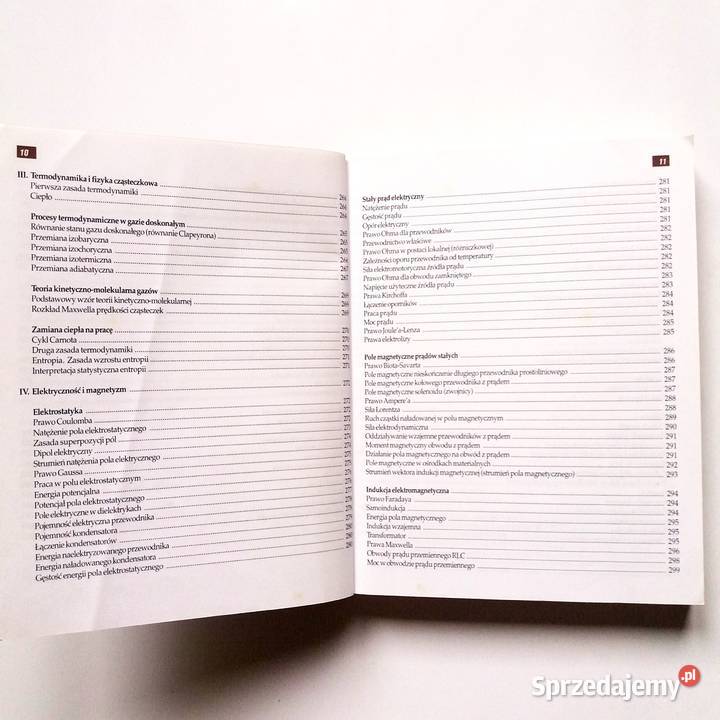 10
III. Termodynamika i fizyka cząsteczkowa
Pierwsza zasada termodynamiki 264
Ciepło 264
Procesy termodynamiczne w gazie doskonałym 264
Równanie stanu gazu doskonałego (równanie Clapeyrona) 265
Przemiana izobaryczna 265
Przemiana izochoryczna 265
Przemiana izotermiczna 266
Przemiana adiabatyczna 267
267
Teoria kinetyczno-molekularna gazów
Podstawowy wzór teorii kinetyczno-molekularnej 269
Rozkład Maxwella prędkości cząsteczek 269
Zamiana ciepła na pracę 270
Cykl Carnota 270
Druga zasada termodynamiki 271
Entropia. Zasada wzrostu entropii 271
Interpretacja statystyczna entropii 271
IV. Elektryczność i magnetyzm 272
Elektrostatyka
Prawo Coulomba
Natężenie pola elektrostatycznego
Zasada superpozycji pól
Dipol elektryczny
Strumień natężenia pola elektrycznego
Prawo Gaussa
Praca w polu elektrostatycznym
Energia potencjalna
Potencjał pola elektrostatycznego
Pole elektryczne w dielektrykach
Pojemność elektryczna przewodnika
Pojemność kondensatora
Łączenie kondensatorów
Energia naelektryzowanego przewodnika
Energia naładowanego kondensatora
Gęstość energii pola elektrostatycznego
11
281
Stały prąd elektryczny 281
Natężenie prądu 281
Gęstość prądu 281
Opór elektryczny 281
Prawo Ohma dla przewodników 282
Przewodnictwo właściwe 282
Prawo Ohma w postaci lokalnej (różniczkowej) 282
Zależności oporu przewodnika od temperatury 282
Siła elektromotoryczna źródła prądu 282
Prawo Ohma dla obwodu zamkniętego 283
Napięcie użyteczne źródła prądu 283
Prawa Kirchoffa 284
Łączenie oporników 284
Praca prądu 284
Moc prądu 285
Prawo Joule'a-Lenza 285
Prawa elektrolizy
Pole magnetyczne prądów stałych 286
Prawo Biota-Savarta 286
Pole magnetyczne nieskończenie długiego przewodnika prostoliniowego 287
Pole magnetyczne kołowego przewodnika z prądem 287
Pole magnetyczne solenoidu (zwojnicy) 287
Prawo Ampere'a 288
Siła Lorentza 288
Ruch cząstki naładowanej w polu magnetycznym 289
Siła elektrodynamiczna 290
Oddziaływanie wzajemne przewodników z prądem 291
Moment magnetyczny obwodu z prądem 291
Działanie pola magnetycznego na obwód z prądem 291
Pole magnetyczne w ośrodkach materialnych 292
Strumień wektora indukcji magnetycznej (strumień pola magnetycznego) 293
Indukcja elektromagnetyczna 294
Prawo Faradaya 294
Samoindukcja 294
Energia pola magnetycznego 295
Indukcja wzajemna 295
Transformator 295
Prawa Maxwella 296
Obwody prądu przemiennego RLC 298
Moc w obwodzie prądu przemiennego 299
Sprzedajemy.pl